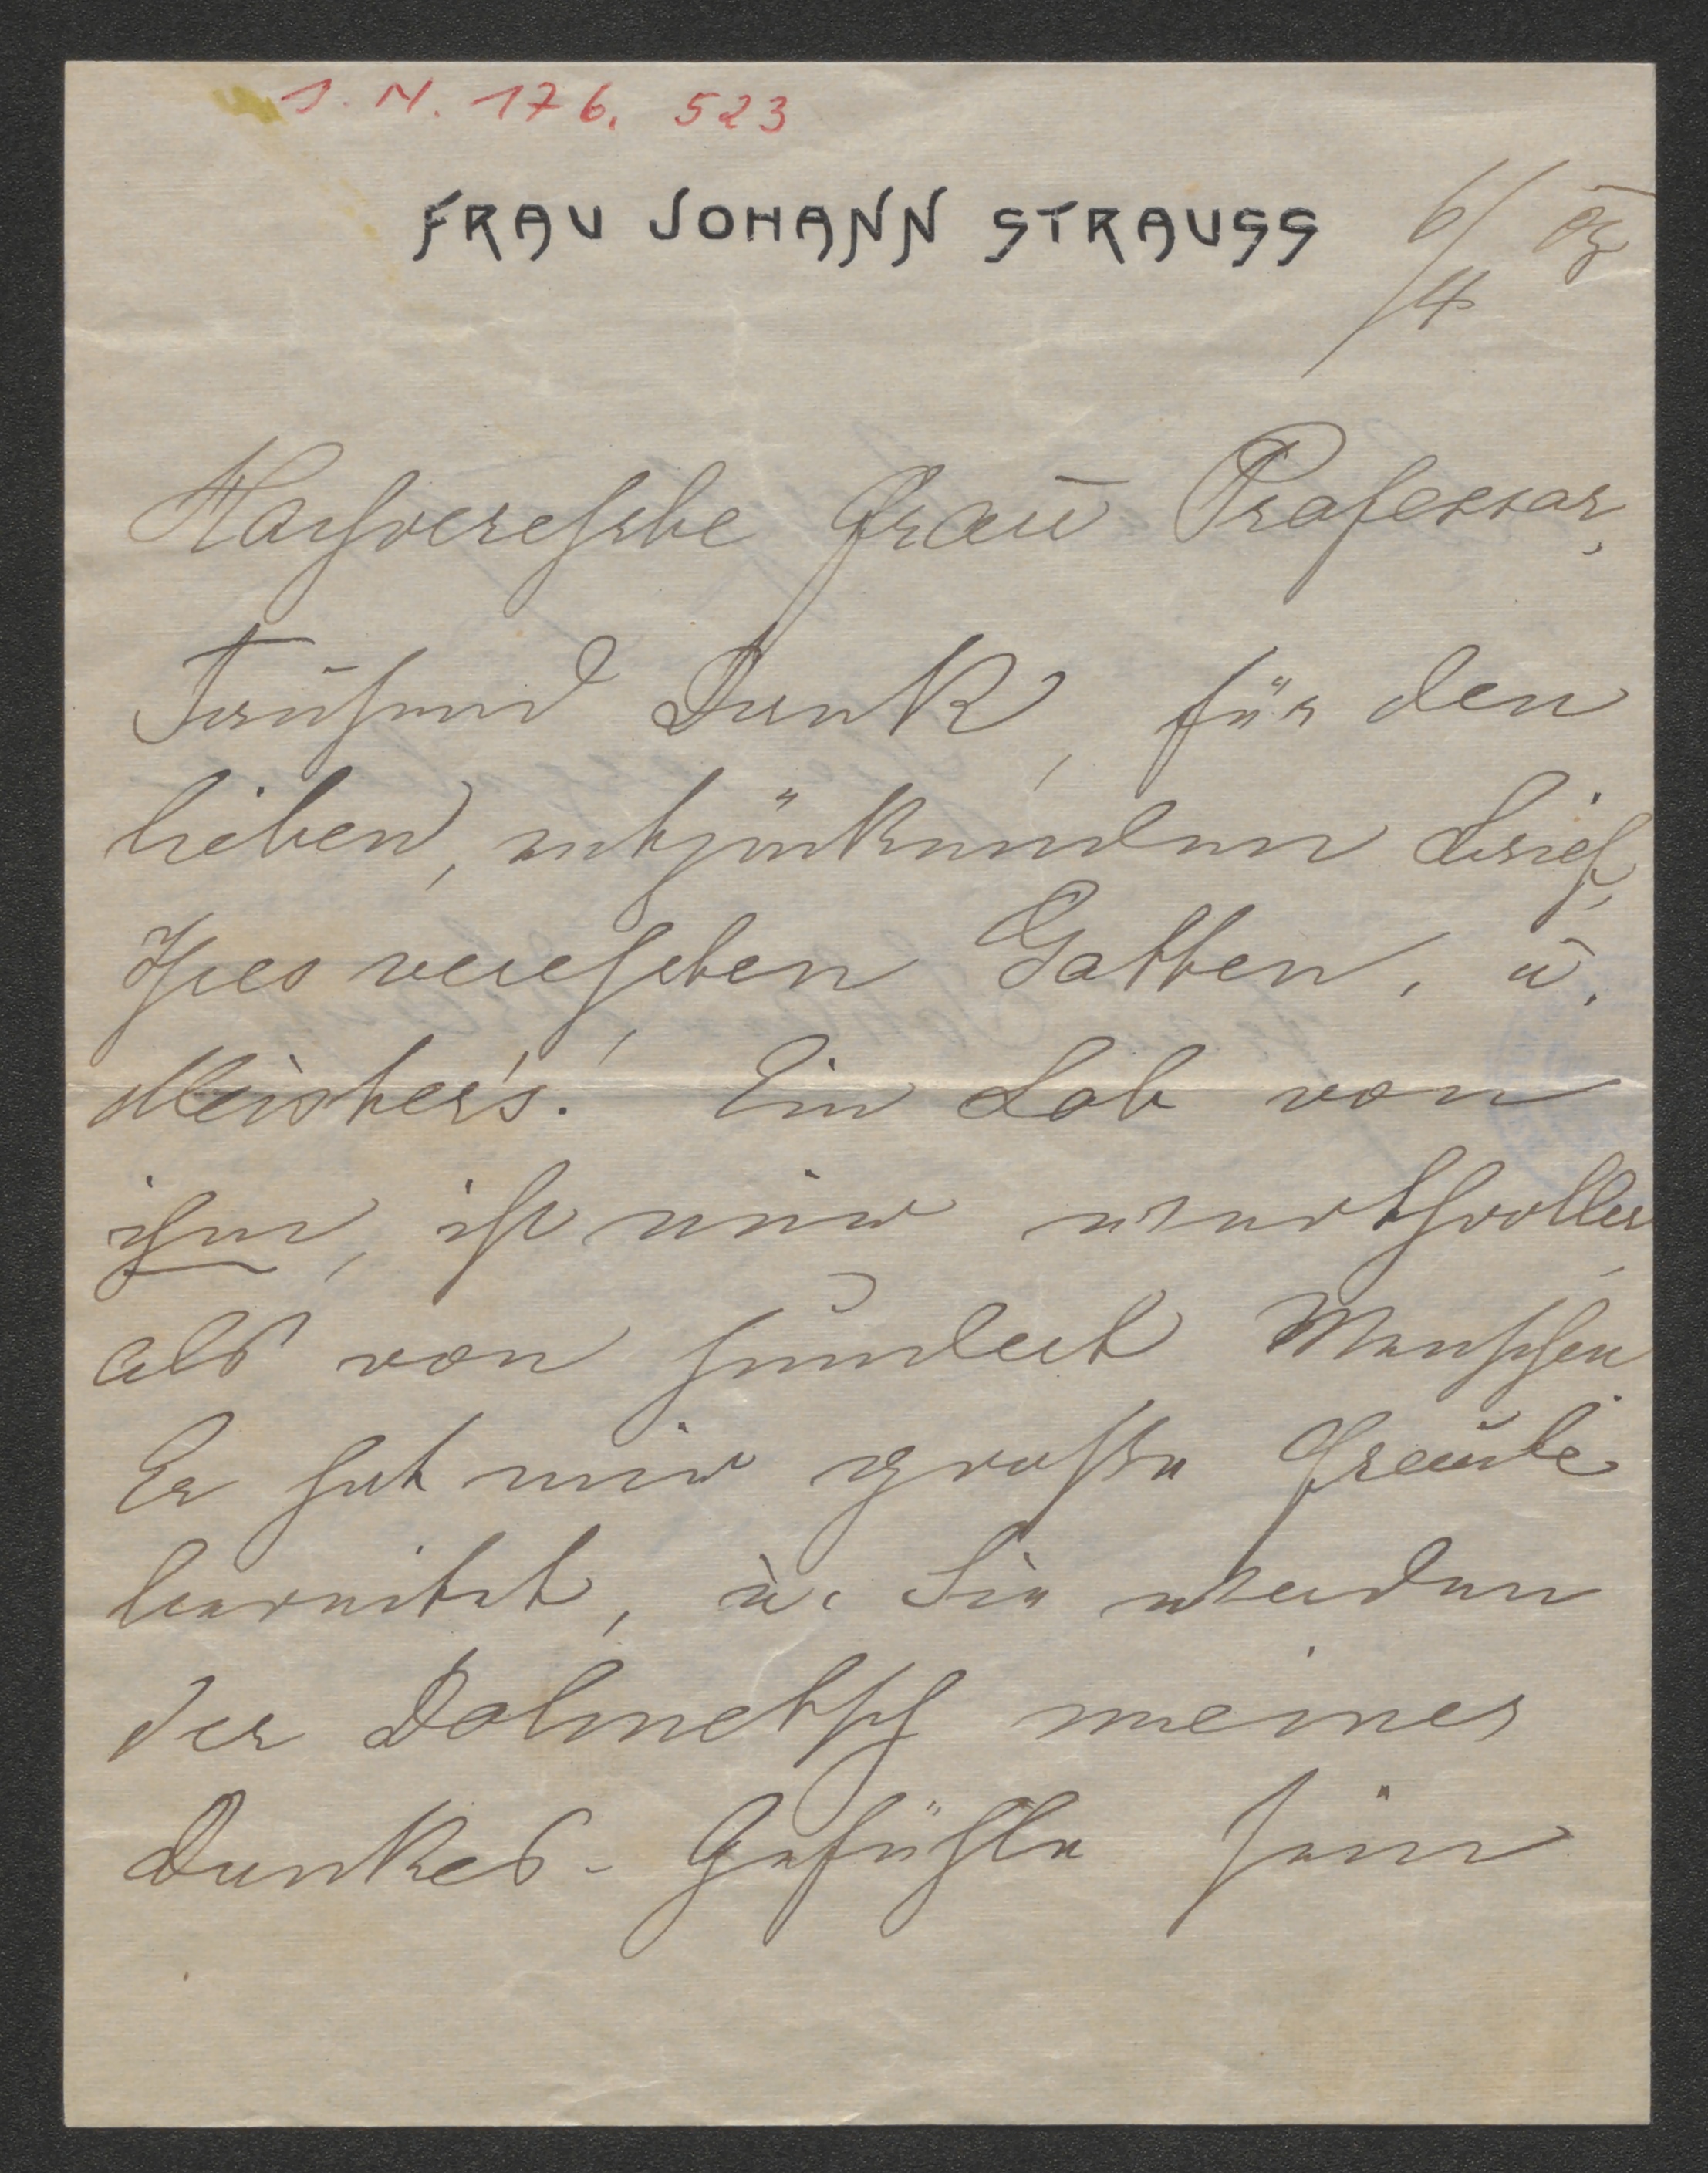 J. N. 176. 523
FRAU JOHANN STRAUSS
6/4
Hochverehrte Frau Professor,
Tausend Dank, für den
lieben, entzückenden Brief,
Ihres verehrten Gatten, u.
Meister's! Ein Lob von
ihm, ist mir werthvoller,
als von hundert Menschen
Er hat mir große Freude
bereitet, u. Sie werden
der Dolmetsch meiner
Dankes-Gefühle sein